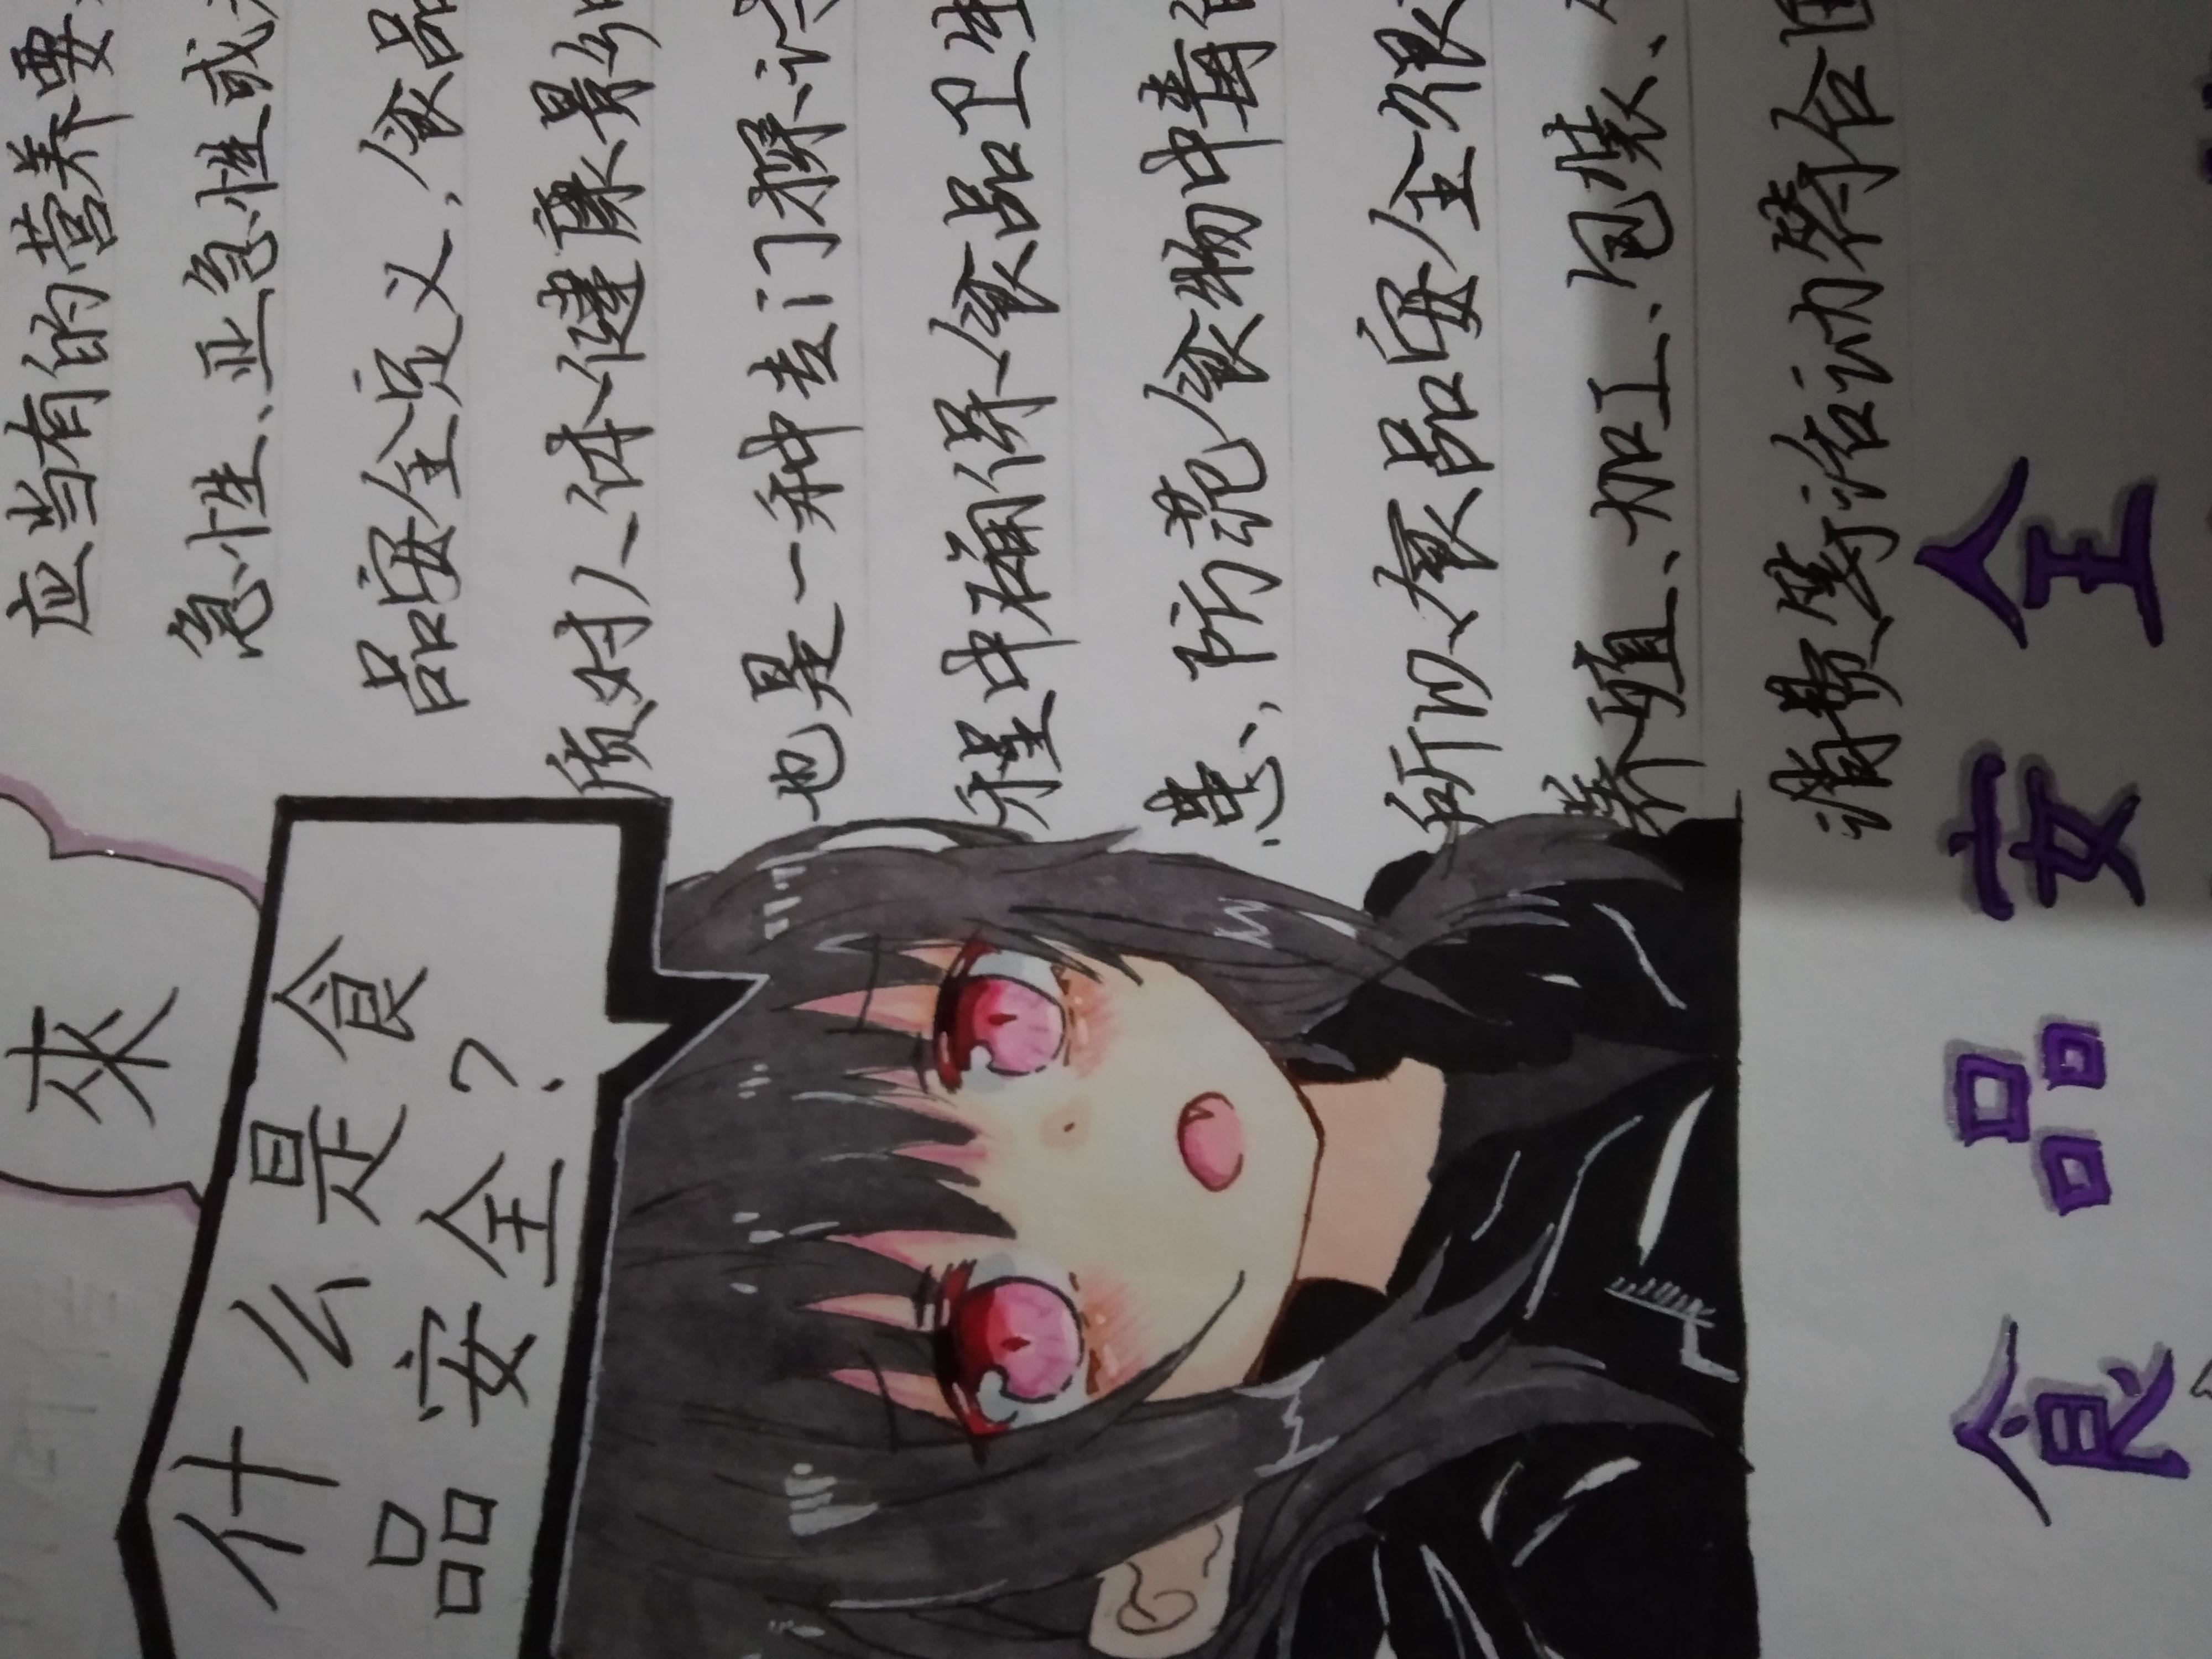 來
什么是食
品安全？
应当有的营养要
急性、亚急性或
品安全定义，食品
质对人体健康影响
也是一种专门探讨
程中确保食品卫生
患，防范食物中毒
所以食品安全很
养殖、加工、包装、
消费等活动符合
食品安全